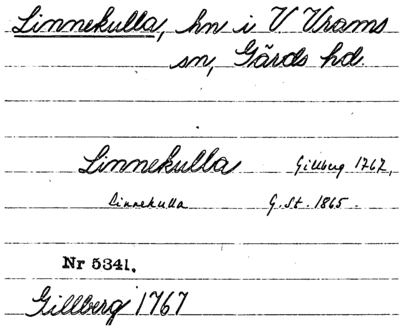 Linnekulla, hn i V Vrams
sn, Gärds hd.
Linnekulla Gillberg 1767,
Linnekulla G. St. 1865.
Nr 5341.
Gillberg 1767